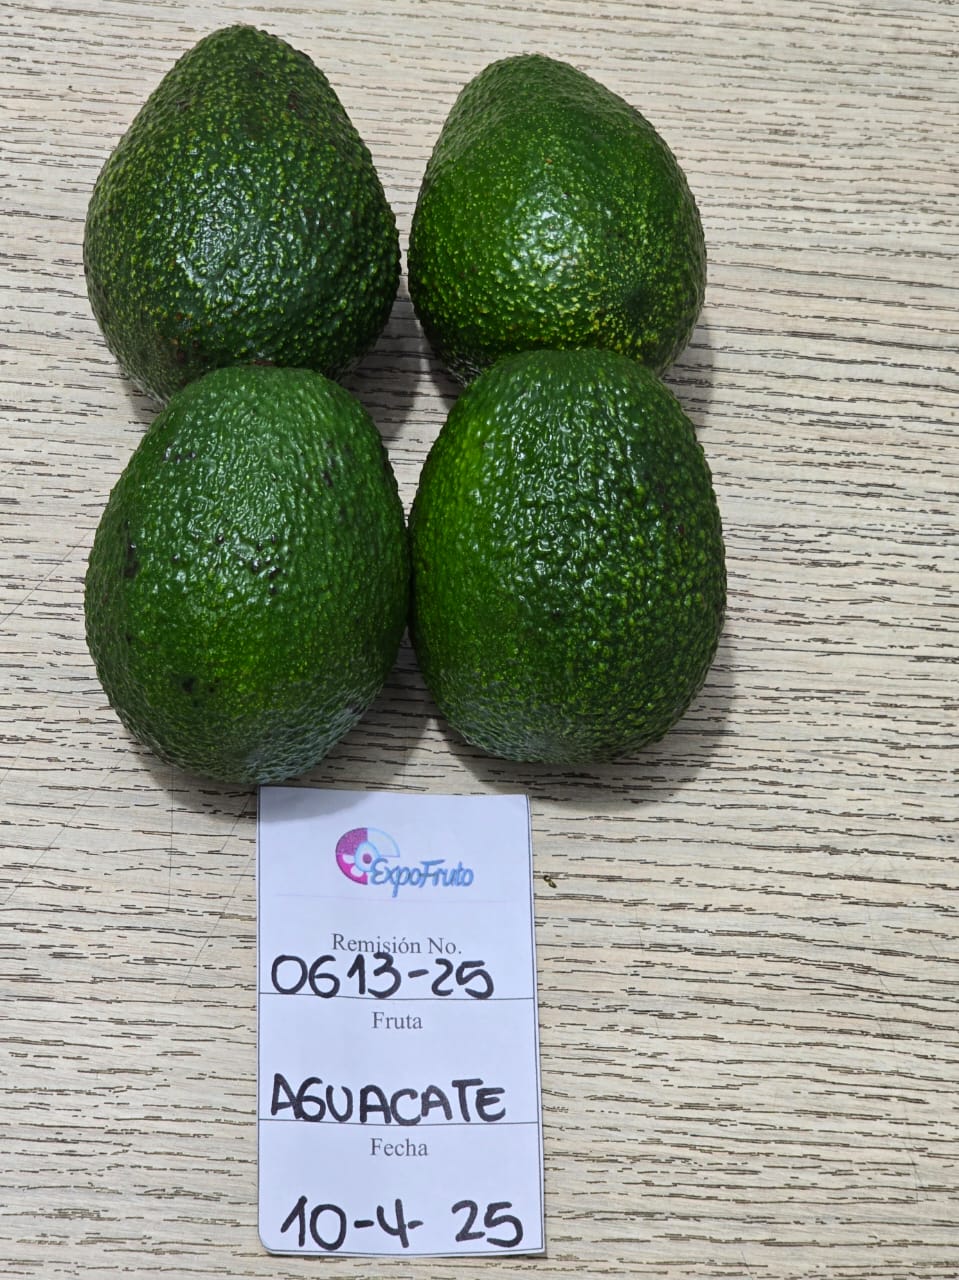 ExpoFruto
Remisión No.
0613-25
Fruta
AGUACATE
Fecha
10-4-25